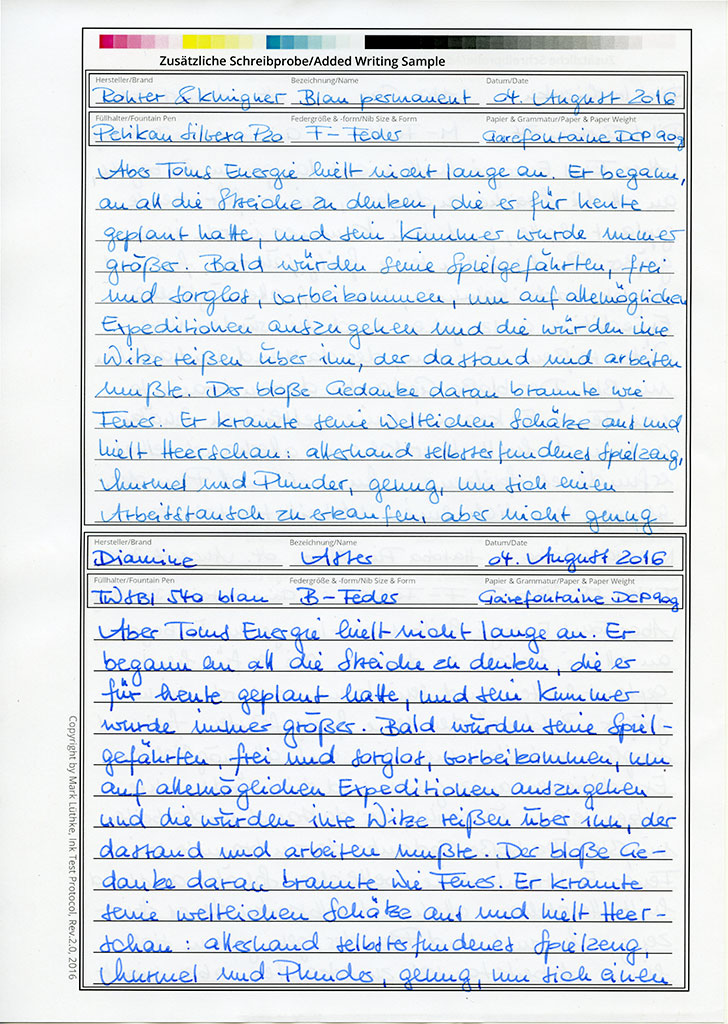 Zusätzliche Schreibprobe/Added Writing Sample
Hersteller/Brand Bezeichnung/Name Datum/Date
Rohrer & Klingner Blau permanent 04. August 2016
Füllhalter/Fountain Pen Federgröße & -form/Nib Size & Form Papier & Grammatur/Paper & Paper Weight
Pelikan Silvera P20 F-Feder Clairefontaine DCP 90g
Aber Toms Energie hielt nicht lange an. Er begann,
an all die Streiche zu denken, die er für heute
geplant hatte, und sein Kummer wurde immer
größer. Bald würden seine Spielgefährten, frei
und sorglos, vorbeikommen, um auf allemöglichen
Expeditionen auszugehen und die würden ihre
Witze reißen über ihn, der dastand und arbeiten
mußte. Der bloße Gedanke daran brannte wie
Feuer. Er kramte seine weltlichen Schätze aus und
hielt Heerschau: allerhand selbsterfundenes Spielzeug,
Murmel und Plunder, genug, um sich einen
Arbeitstausch zu erkaufen, aber nicht genug
Hersteller/Brand Bezeichnung/Name Datum/Date
Diamine Aster 04. August 2016
Füllhalter/Fountain Pen Federgröße & -form/Nib Size & Form Papier & Grammatur/Paper & Paper Weight
TWSBI 540 blau B-Feder Clairefontaine DCP 90g
Aber Toms Energie hielt nicht lange an. Er
begann an all die Streiche zu denken, die er
für heute geplant hatte, und sein Kummer
wurde immer größer. Bald würden seine Spiel-
gefährten, frei und sorglos, vorbeikommen, um
auf allemöglichen Expeditionen auszugehen
und die würden ihre Witze reißen über ihn, der
dastand und arbeiten mußte. Der bloße Ge-
danke daran brannte wie Feuer. Er kramte
seine weltlichen Schätze aus und hielt Heer-
schau: allerhand selbsterfundenes Spielzeug,
Murmel und Plunder, genug, um sich einen
Copyright by Mark Lüthke, Ink Test Protocol, Rev.2.0, 2016